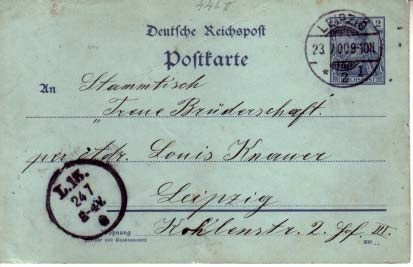 4468
Deutsche Reichspost
Postkarte
LEIPZIG
23.7.00.9-10N.
* 2 1
2
An Stammtisch
"Treue Brüderschaft.
per Adr. Louis Knauer
Leipzig
Kohlenstr. 2. Hof. III.
L.13.
24 7
8-9V.
Wohnung
(Straße und Hausnummer)